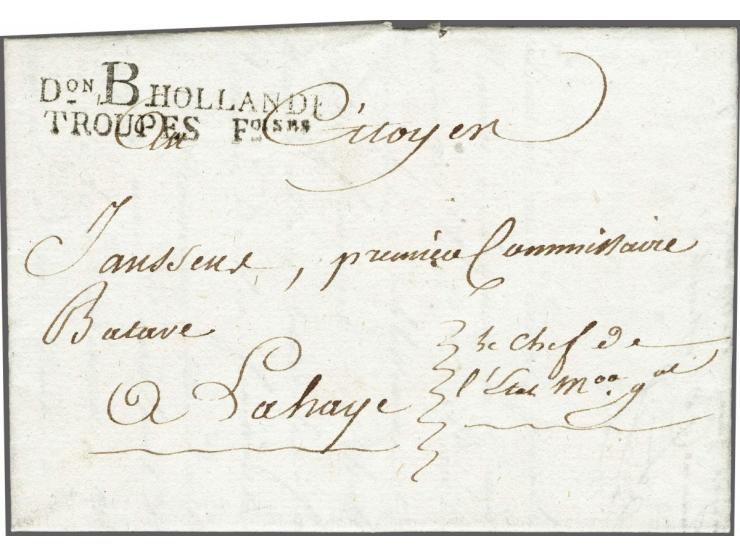 Dᵒⁿ B HOLLANDE
TROUPES Fᵒⁱˢᵉˢ
Au Citoyen
Janssens, premier Commissaire
Batave
a Lahaye
le chef de
l'Etat Mᵒᵒʳ gᵃˡ